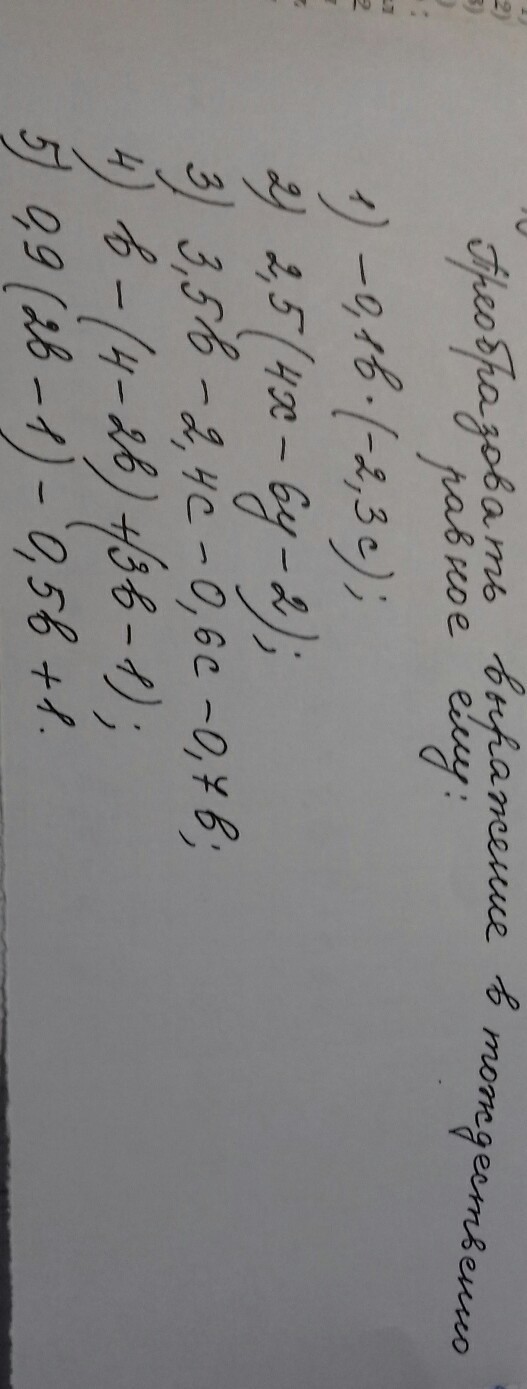 Преобразовать выражение в тождественно
равное ему:
1) -0,1в·(-2,3с);
2) 2,5(4х-6у-2);
3) 3,5в-2,4с-0,6с-0,7в;
4) в-(4-2в)+(3в-1);
5) 0,9(2в-1)-0,5в+1.